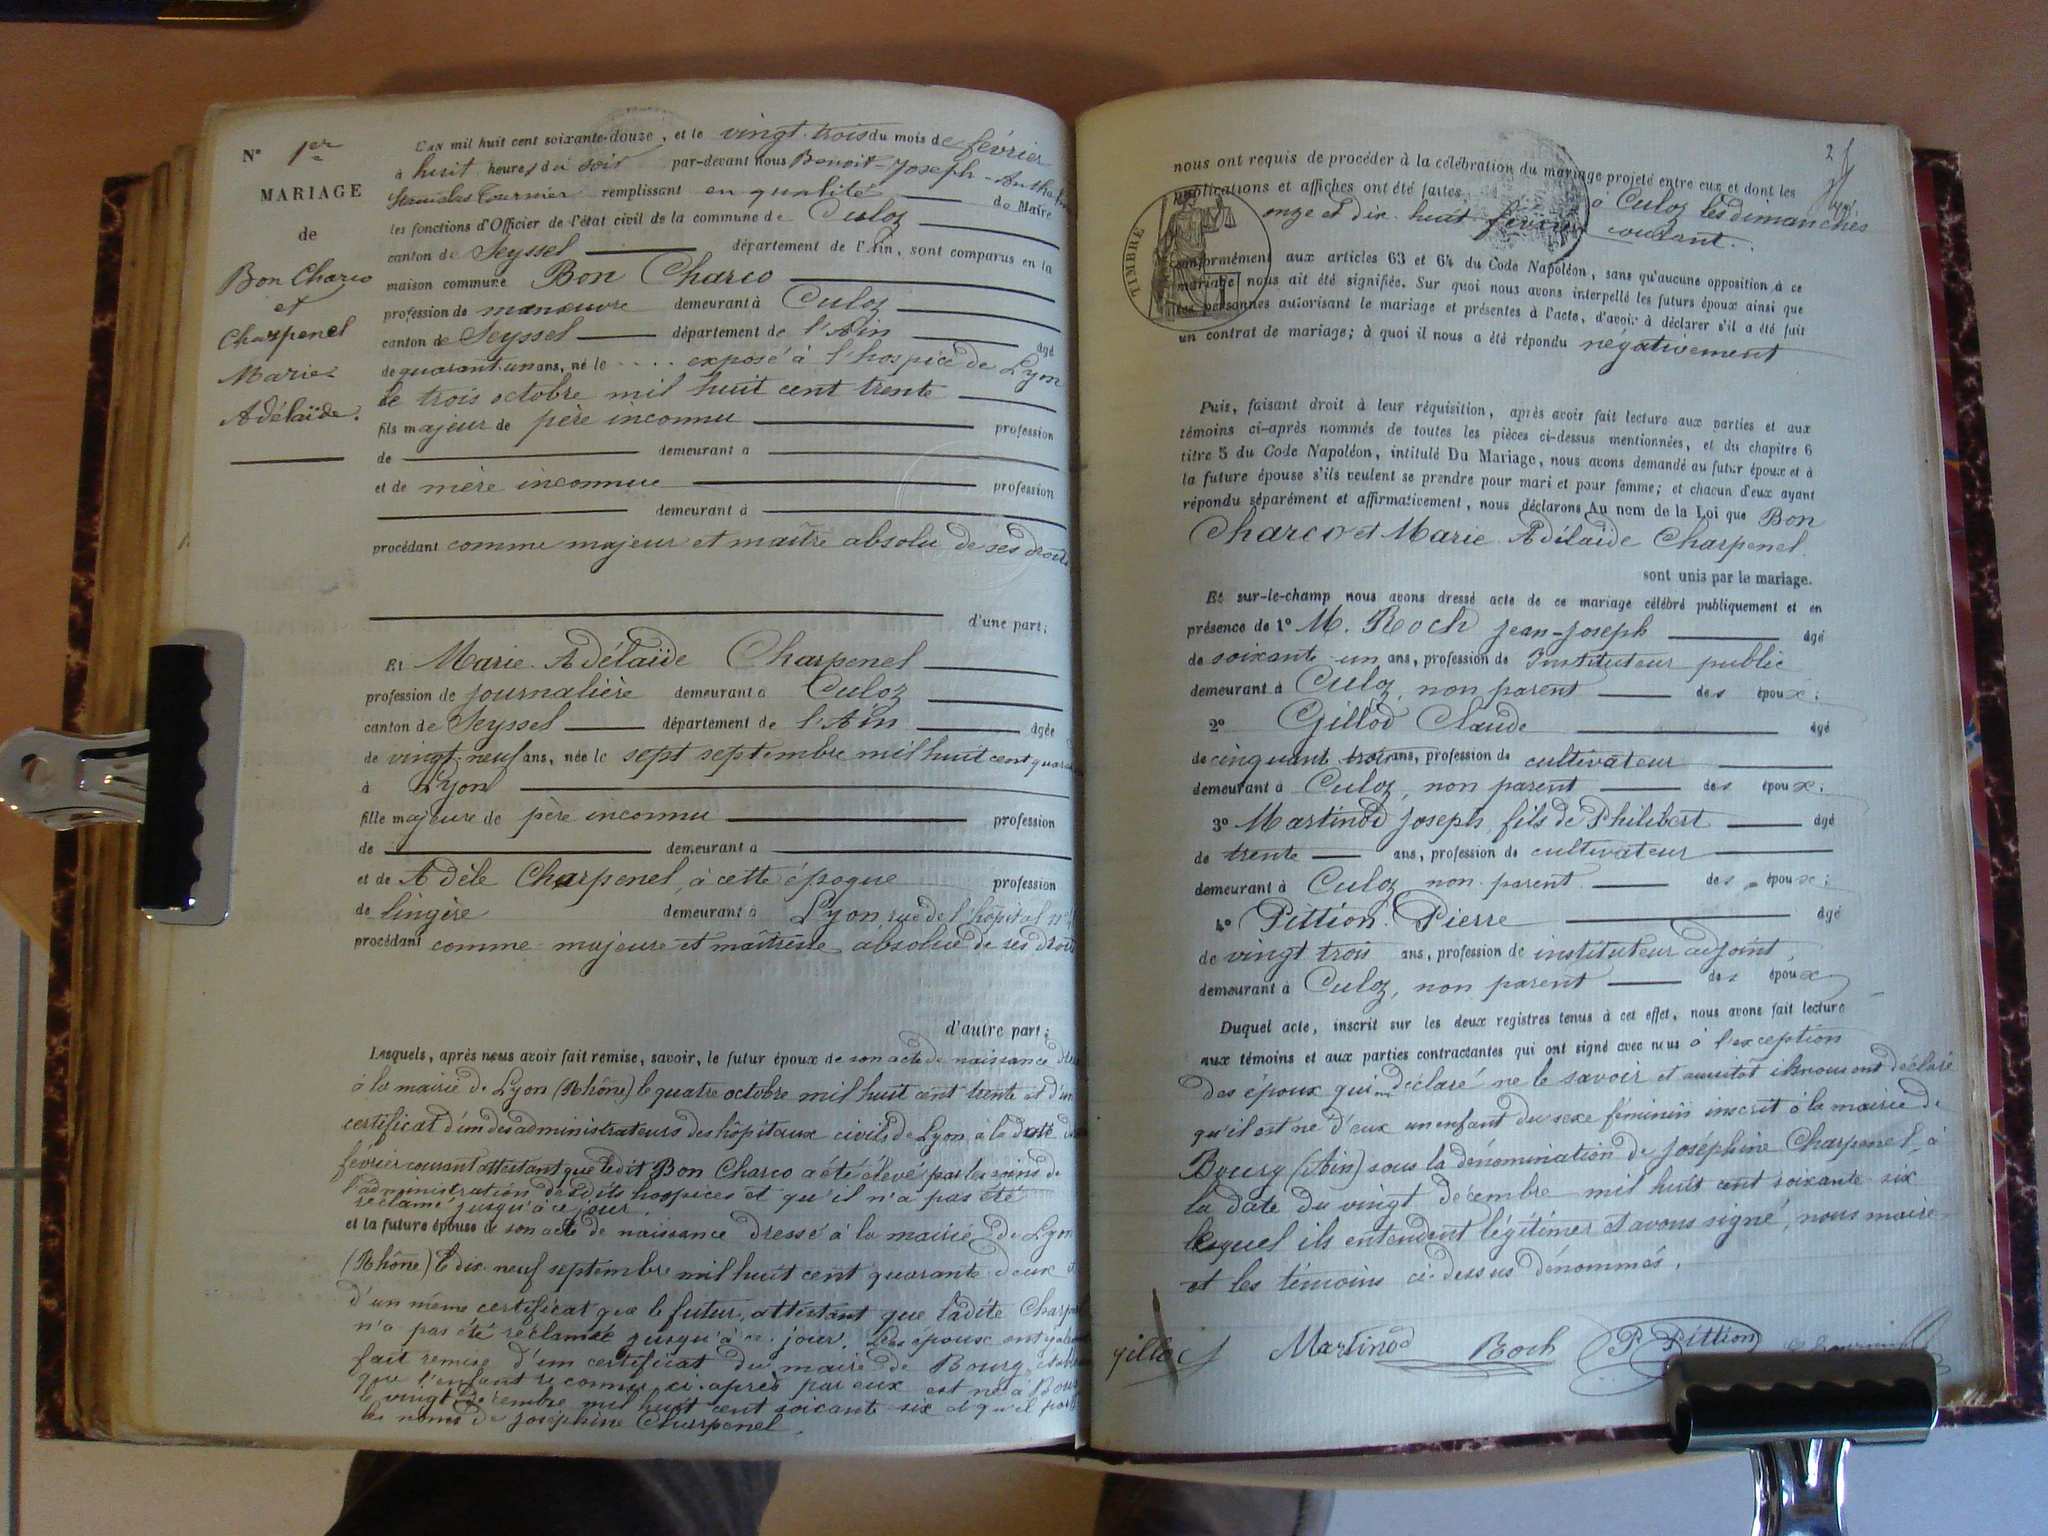 N° 1er
MARIAGE
de
Bon Charco
et
Charpenel
Marie
Adélaïde.
L'AN mil huit cent soixante-douze, et le vingt-trois du mois de février
à huit heures du soir par-devant nous Benoit-Joseph-Anthe
Tournier remplissant en qualité de Maire
les fonctions d'Officier de l'état civil de la commune de Culoz
canton de Seyssel département de l'Ain, sont comparus en la
maison commune Bon Charco
profession de manœuvre demeurant à Culoz
canton de Seyssel département de l'Ain âgé
de quarant-un ans, né le .... exposé à l'hospice de Lyon
le trois octobre mil huit cent trente
fils majeur de père inconnu profession
de demeurant à
et de mère inconnue profession
demeurant à
procédant comme majeur et maître absolu de ses droits
d'une part;
Et Marie Adélaïde Charpenel
profession de journalière demeurant à Culoz
canton de Seyssel département de l'Ain âgée
de vingt-neuf ans, née le sept septembre mil huit cent quaran
à Lyon
fille majeure de père inconnu profession
de demeurant à
et de Adèle Charpenel, à cette époque profession
de lingère demeurant à Lyon rue de l'hôpital n°
procédant comme majeure et maîtresse absolue de ses droits
d'autre part;
Lesquels, après nous avoir fait remise, savoir, le futur époux de son acte de naissance
à la mairie de Lyon (Rhône) le quatre octobre mil huit cent trente et d'un
certificat d'un des administrateurs des hôpitaux civils de Lyon, à la date
février courant attestant que ledit Bon Charco a été élevé par les soins de
l'administration desdits hospices et qu'il n'a pas été
réclamé jusqu'à ce jour.
et la future épouse de son acte de naissance dressé à la mairie de Lyon
(Rhône) le dix-neuf septembre mil huit cent quarante-deux
d'un même certificat que le futur, attestant que ladite Charp
n'a pas été réclamée jusqu'à ce jour. Les époux ont
fait remise d'un certificat du maire de Bourg
que l'enfant reconnu ci-après par eux est né à Bour
le vingt décembre mil huit cent soixante-six et qu'il porte
les noms de Joséphine Charpenel.
2
nous ont requis de procéder à la célébration du mariage projeté entre eux et dont les
publications et affiches ont été faites à Culoz les dimanches
onze et dix-huit février courant.
TIMBRE
conformément aux articles 63 et 64 du Code Napoléon, sans qu'aucune opposition à ce
mariage nous ait été signifiée. Sur quoi nous avons interpellé les futurs époux ainsi que
les personnes autorisant le mariage et présentes à l'acte, d'avoir à déclarer s'il a été fait
un contrat de mariage; à quoi il nous a été répondu negativement
Puis, faisant droit à leur réquisition, après avoir fait lecture aux parties et aux
témoins ci-après nommés de toutes les pièces ci-dessus mentionnées, et du chapitre 6
titre 5 du Code Napoléon, intitulé Du Mariage, nous avons demandé au futur époux et à
la future épouse s'ils veulent se prendre pour mari et pour femme; et chacun d'eux ayant
répondu séparément et affirmativement, nous déclarons Au nom de la Loi que Bon
Charco et Marie Adélaïde Charpenel.
sont unis par le mariage.
Et sur-le-champ nous avons dressé acte de ce mariage célébré publiquement et en
présence de 1° M. Roch Jean-Joseph âgé
de soixante-un ans, profession de Instituteur public
demeurant à Culoz, non parent des époux;
2° Gillod Claude âgé
de cinquant trois ans, profession de cultivateur
demeurant à Culoz, non parent des époux;
3° Martinod Joseph, fils de Philibert âgé
de trente ans, profession de cultivateur
demeurant à Culoz non parent des époux;
4° Pittion Pierre âgé
de vingt trois ans, profession de instituteur adjoint,
demeurant à Culoz, non parent des époux
Duquel acte, inscrit sur les deux registres tenus à cet effet, nous avons fait lecture
aux témoins et aux parties contractantes qui ont signé avec nous à l'exception
des époux qui ont déclaré ne le savoir et aussitôt ils nous ont déclaré
qu'il est né d'eux un enfant du sexe féminin inscrit à la mairie de
Bourg (Ain) sous la dénomination de Joséphine Charpenel, à
la date du vingt décembre mil huit cent soixante six
lequel ils entendent légitimer et avons signé, nous maire
et les témoins ci-dessus dénommés.
gillod Martinod Roch P. Pittion